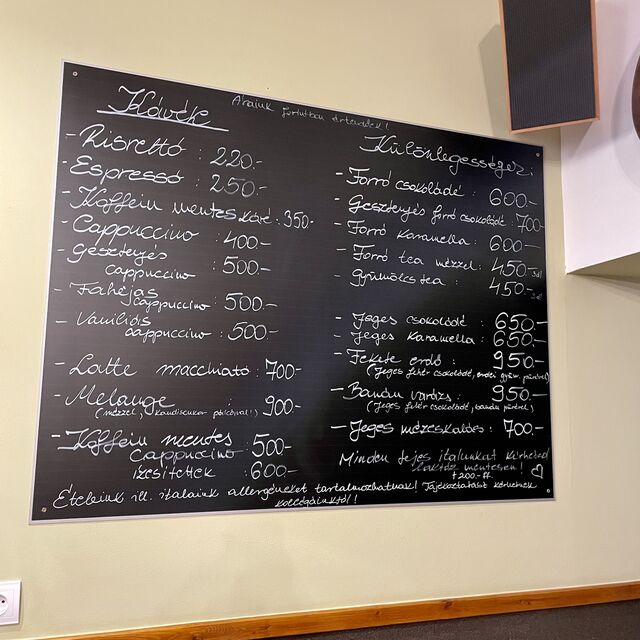 Kávék
Áraink forintban értendőek!
- Ristrettó : 220.-
- Espressó : 250.-
- Koffein mentes kávé : 350.-
- Cappuccino : 400.-
- Gesztenyés
cappuccino : 500.-
- Fahéjas
cappuccino : 500.-
- Vaníliás
cappuccino : 500.-
- Latte macchiato : 700.-
- Melange : 900.-
(mézzel, kandiscukor pálcával!)
- Koffein mentes
Cappuccino 500.-
ízesítettek : 600.-
Különlegességek:
- Forró csokoládé : 600.-
- Gesztenyés forró csokoládé : 700.-
- Forró karamella : 600.-
- Forró tea mézzel : 450.-
- Gyümölcs tea : 450.-
- Jeges csokoládé : 650.-
- Jeges karamella : 650.-
- Fekete erdő : 950.-
(Jeges fehér csokoládé, erdei gyüm. pürével)
- Banán varázs : 950.-
(Jeges fehér csokoládé, banán pürével)
- Jeges mézeskalács : 700.-
Minden tejes italunkat kérheted
laktóz mentesen!
+200.-Ft
Ételeink ill. italaink allergéneket tartalmazhatnak! Tájékoztatást kérhetnek
kollégáinktól!